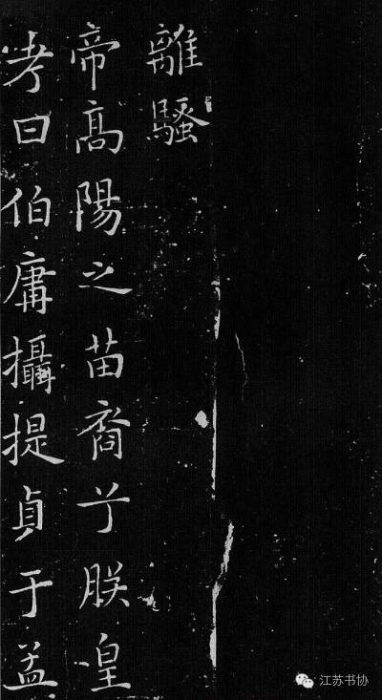 離騷
帝高陽之苗裔兮朕皇
考曰伯庸攝提貞于孟
江苏书协